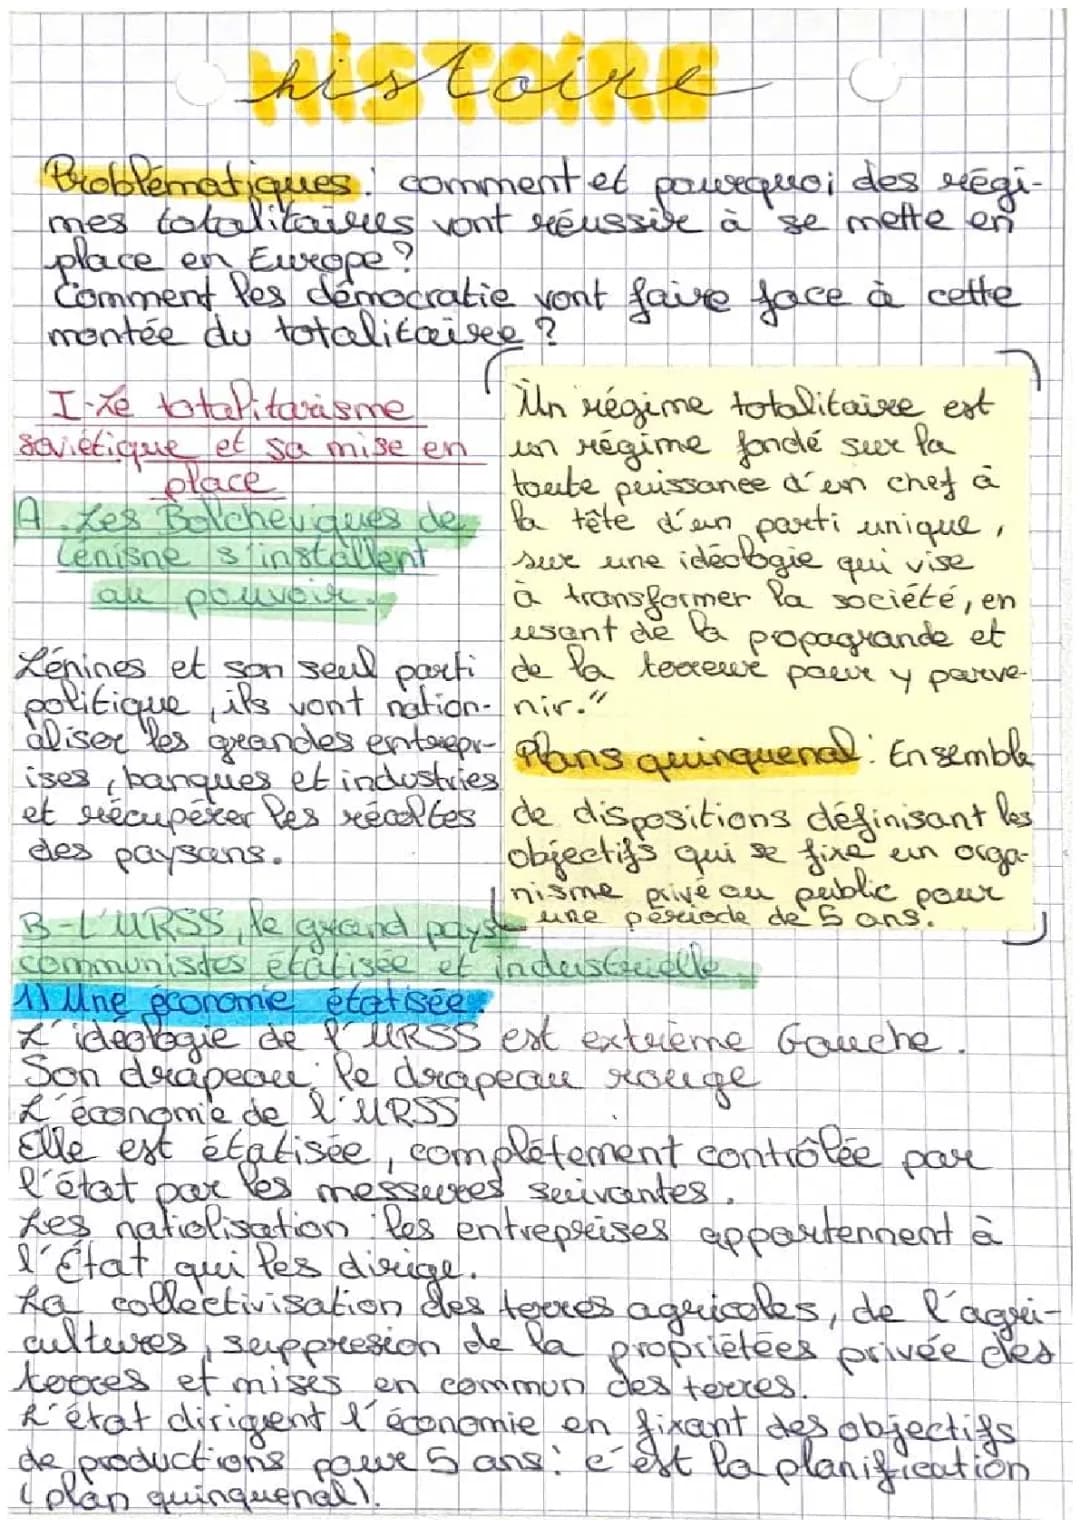 histoire
Problématiques : comment et pourquoi des régi-
mes totalitaires vont réussir à se mette en
place en Europe ?
Comment les démocratie vont faire face à cette
montée du totalitaire ?
I-Le totalitarisme
soviétique et sa mise en
place
A. Les Bolcheviques de
Lénisne s'installent
au pouvoir.
Lénines et son seul parti
politique, ils vont nation-
aliser les grandes entrepr-
ises, banques et industries
et récupérer les récoltes
des paysans.
Un régime totalitaire est
un régime fondé sur la
toute puissance d'un chef à
la tête d'un parti unique,
sur une idéologie qui vise
à transformer la société, en
usant de la propagrande et
de la terreur pour y parve-
nir."
Plans quinquenal : Ensemble
de dispositions définisant les
objectifs qui se fixe un orga-
nisme privé ou public pour
une période de 5 ans.
B-L'URSS, le grand pays
communistes étatisée et industrielle.
1) Une économie étatisée :
L'idéologie de l'URSS est extrème Gauche.
Son drapeau : le drapeau rouge
L'économie de l'URSS
Elle est étatisée, complétement contrôlée par
l'état par les messures suivantes.
Les natiolisation : les entreprises appartennent à
l'État qui les dirige.
La collectivisation des terres agricoles, de l'agri-
cultures, suppresion de la propriétées privée des
terres et mises en commun des terres.
L'état dirigent l'économie en fixant des objectifs
de productions pour 5 ans : c'est la planification
(plan quinquenal).